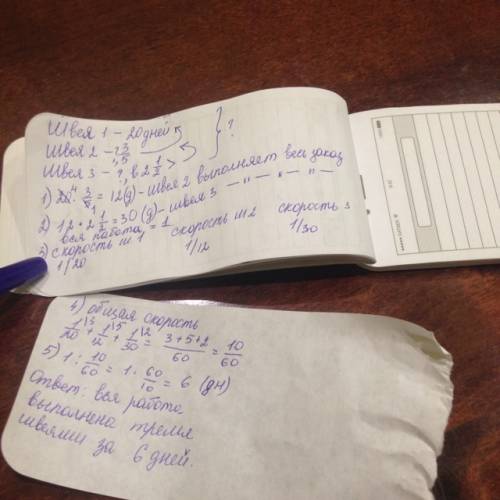 Швея 1 – 20 дней
Швея 2 – ?, 3/5
Швея 3 – ?, в 2 1/2 > } ?
1) 20 · 3/5 = 12 (д) – швея 2 выполняет весь заказ
2) 12 · 2 1/2 = 30 (д) – швея 3 — " — " — " —
вся работа = 1
3) скорость ш. 1 скорость ш 2 скорость 3
1/20 1/12 1/30
4) общая скорость
1/20 + 1/12 + 1/30 = 3+5+2/60 = 10/60
5) 1 : 10/60 = 1 · 60/10 = 6 (дн)
Ответ: вся работа
выполнена тремя
швеями за 6 дней.